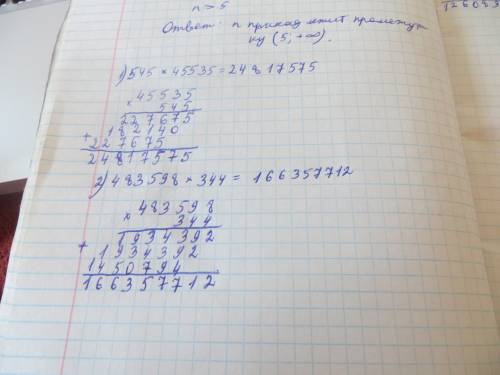 n > 5
Ответ: n принадлежит промежут
ку (5; +∞).
1) 545 × 45535 = 24817575
× 45535
545
227675
+ 182140
227675
24817575
2) 483598 × 344 = 166357712
× 483598
344
1934392
+ 1934392
1450794
166357712